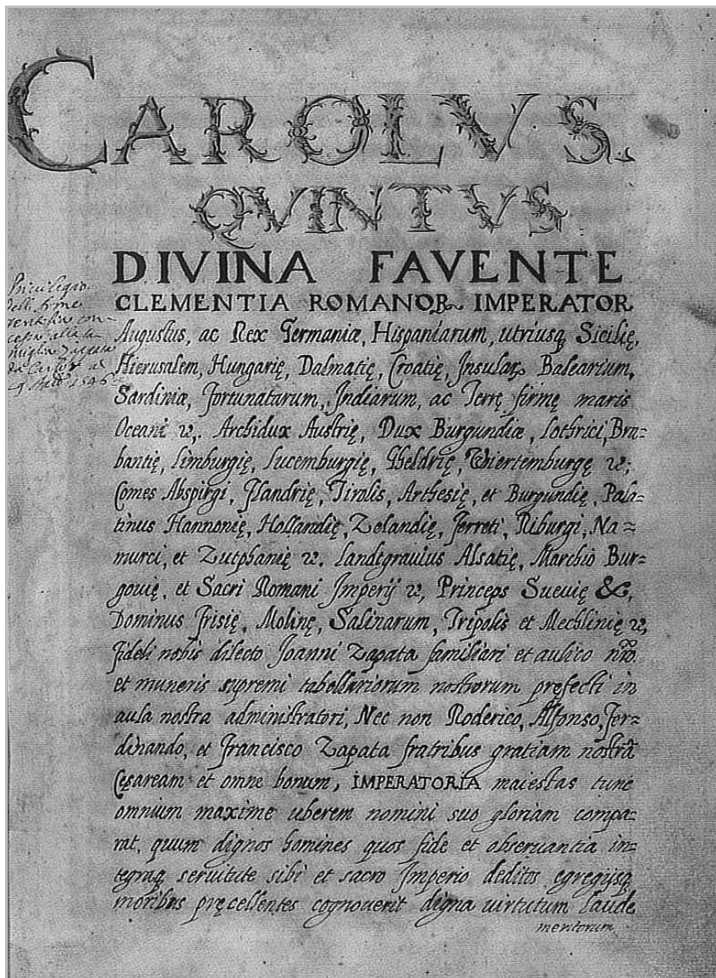 CAROLVS.
QVINTVS
DIVINA FAVENTE
CLEMENTIA ROMANOR IMPERATOR
Augustus, ac Rex Germaniæ, Hispaniarum, utriusq Sicilię,
Hierusalem, Hungarię, Dalmatię, Croatię, Insular Balearium,
Sardiniæ, Fortunatarum, Indiarum, ac Terrę firmę maris
Oceani &, Archidux Austrię, Dux Burgundiæ, Lothrici, Bra-
bantię, Limburgię, Lucemburgię, Gheldrię, Wiertembergę &;
Comes Abspirgi, Flandrię, Tirolis, Arthesię, et Burgundię, Pala-
tinus Hannonię, Hollandię, Zelandię, Ferreti, Kiburgi, Na-
murci, et Zutphanię &. Landtgravius Alsatię, Marchio Bur-
govię, et Sacri Romani Imperij &, Princeps Suevię &,
Dominus Frisię, Molinę, Salinarum, Tripolis et Mechlinię &,
fideli nobis dilecto Joanni Zapata familiari et aulico nrō.
et muneris supremi tabellariorum nostrorum prefecti in
aula nostra administratori, Nec non Roderico, Alfonso, Fer-
dinando, et Francisco Zapata fratribus gratiam nostrā
Cęsaream et omne bonum, IMPERATORIA maiestas tunc
omnium maxime uberem nomini suo gloriam compa-
rat, quum dignos homines quos fide et observantia in-
tegraq servitute sibi et sacro Imperio deditos egregijsq
moribus pręcellentes cognoverit digna virtutum laude
meritorum
Privilegio
delli
alla fa-
miglia Zapata
da Carlo
1546